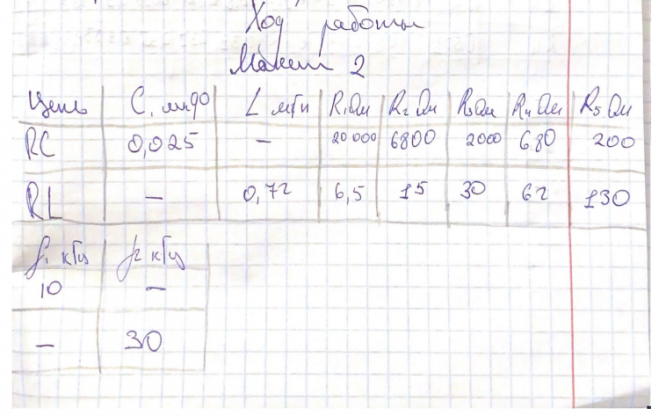 Ход работы
Макет 2
Цепь C, мкФ L мГн R₁ Ом R₂ Ом R₃ Ом R₄ Ом R₅ Ом
RC 0,025 — 20 000 6800 2000 680 200
RL — 0,72 6,5 15 30 62 130
f₁ кГц f₂ кГц
10 —
— 30